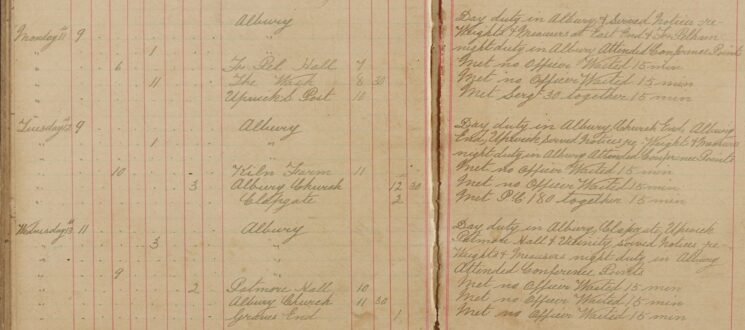 Albury Day duty in Albury & Served Notices re
Monday 11 9 Weights & Measures at East End & Fx Pelham
" 1 " night duty in Albury Attended Conference Points
" 6 Fx Pel Hall 7 Met no Officer Waited 15 min
" 11 The Wash 8 30 Met no Officer Waited 15 min
" Upwick & Post 10 Met Sergt 30 together 15 min
Tuesday 12 9 Albury Day duty in Albury, Church End, Albury
" 1 " End, Upwick, Served Notices re Weights & Measures
night duty in Albury Attended Conference Points
" 10 Kiln Farm 11 Met no Officer Waited 15 min
" 3 Albury Church 12 30 Met no Officer Waited 15 min
" Clapgate 2 Met P.C. 180 together 15 min
Wednesday 13 11 Albury Day duty in Albury, Clapgate, Upwick
" 3 " Patmore Hall & Vicinity served Notices re
Weights & Measures night duty in Albury
" 9 Attended Conference Points
" 2 Patmore Hall 10 Met no Officer Waited 15 min
" Albury Church 11 30 Met no Officer Waited 15 min
" Graves End 1 Met no Officer Waited 15 min